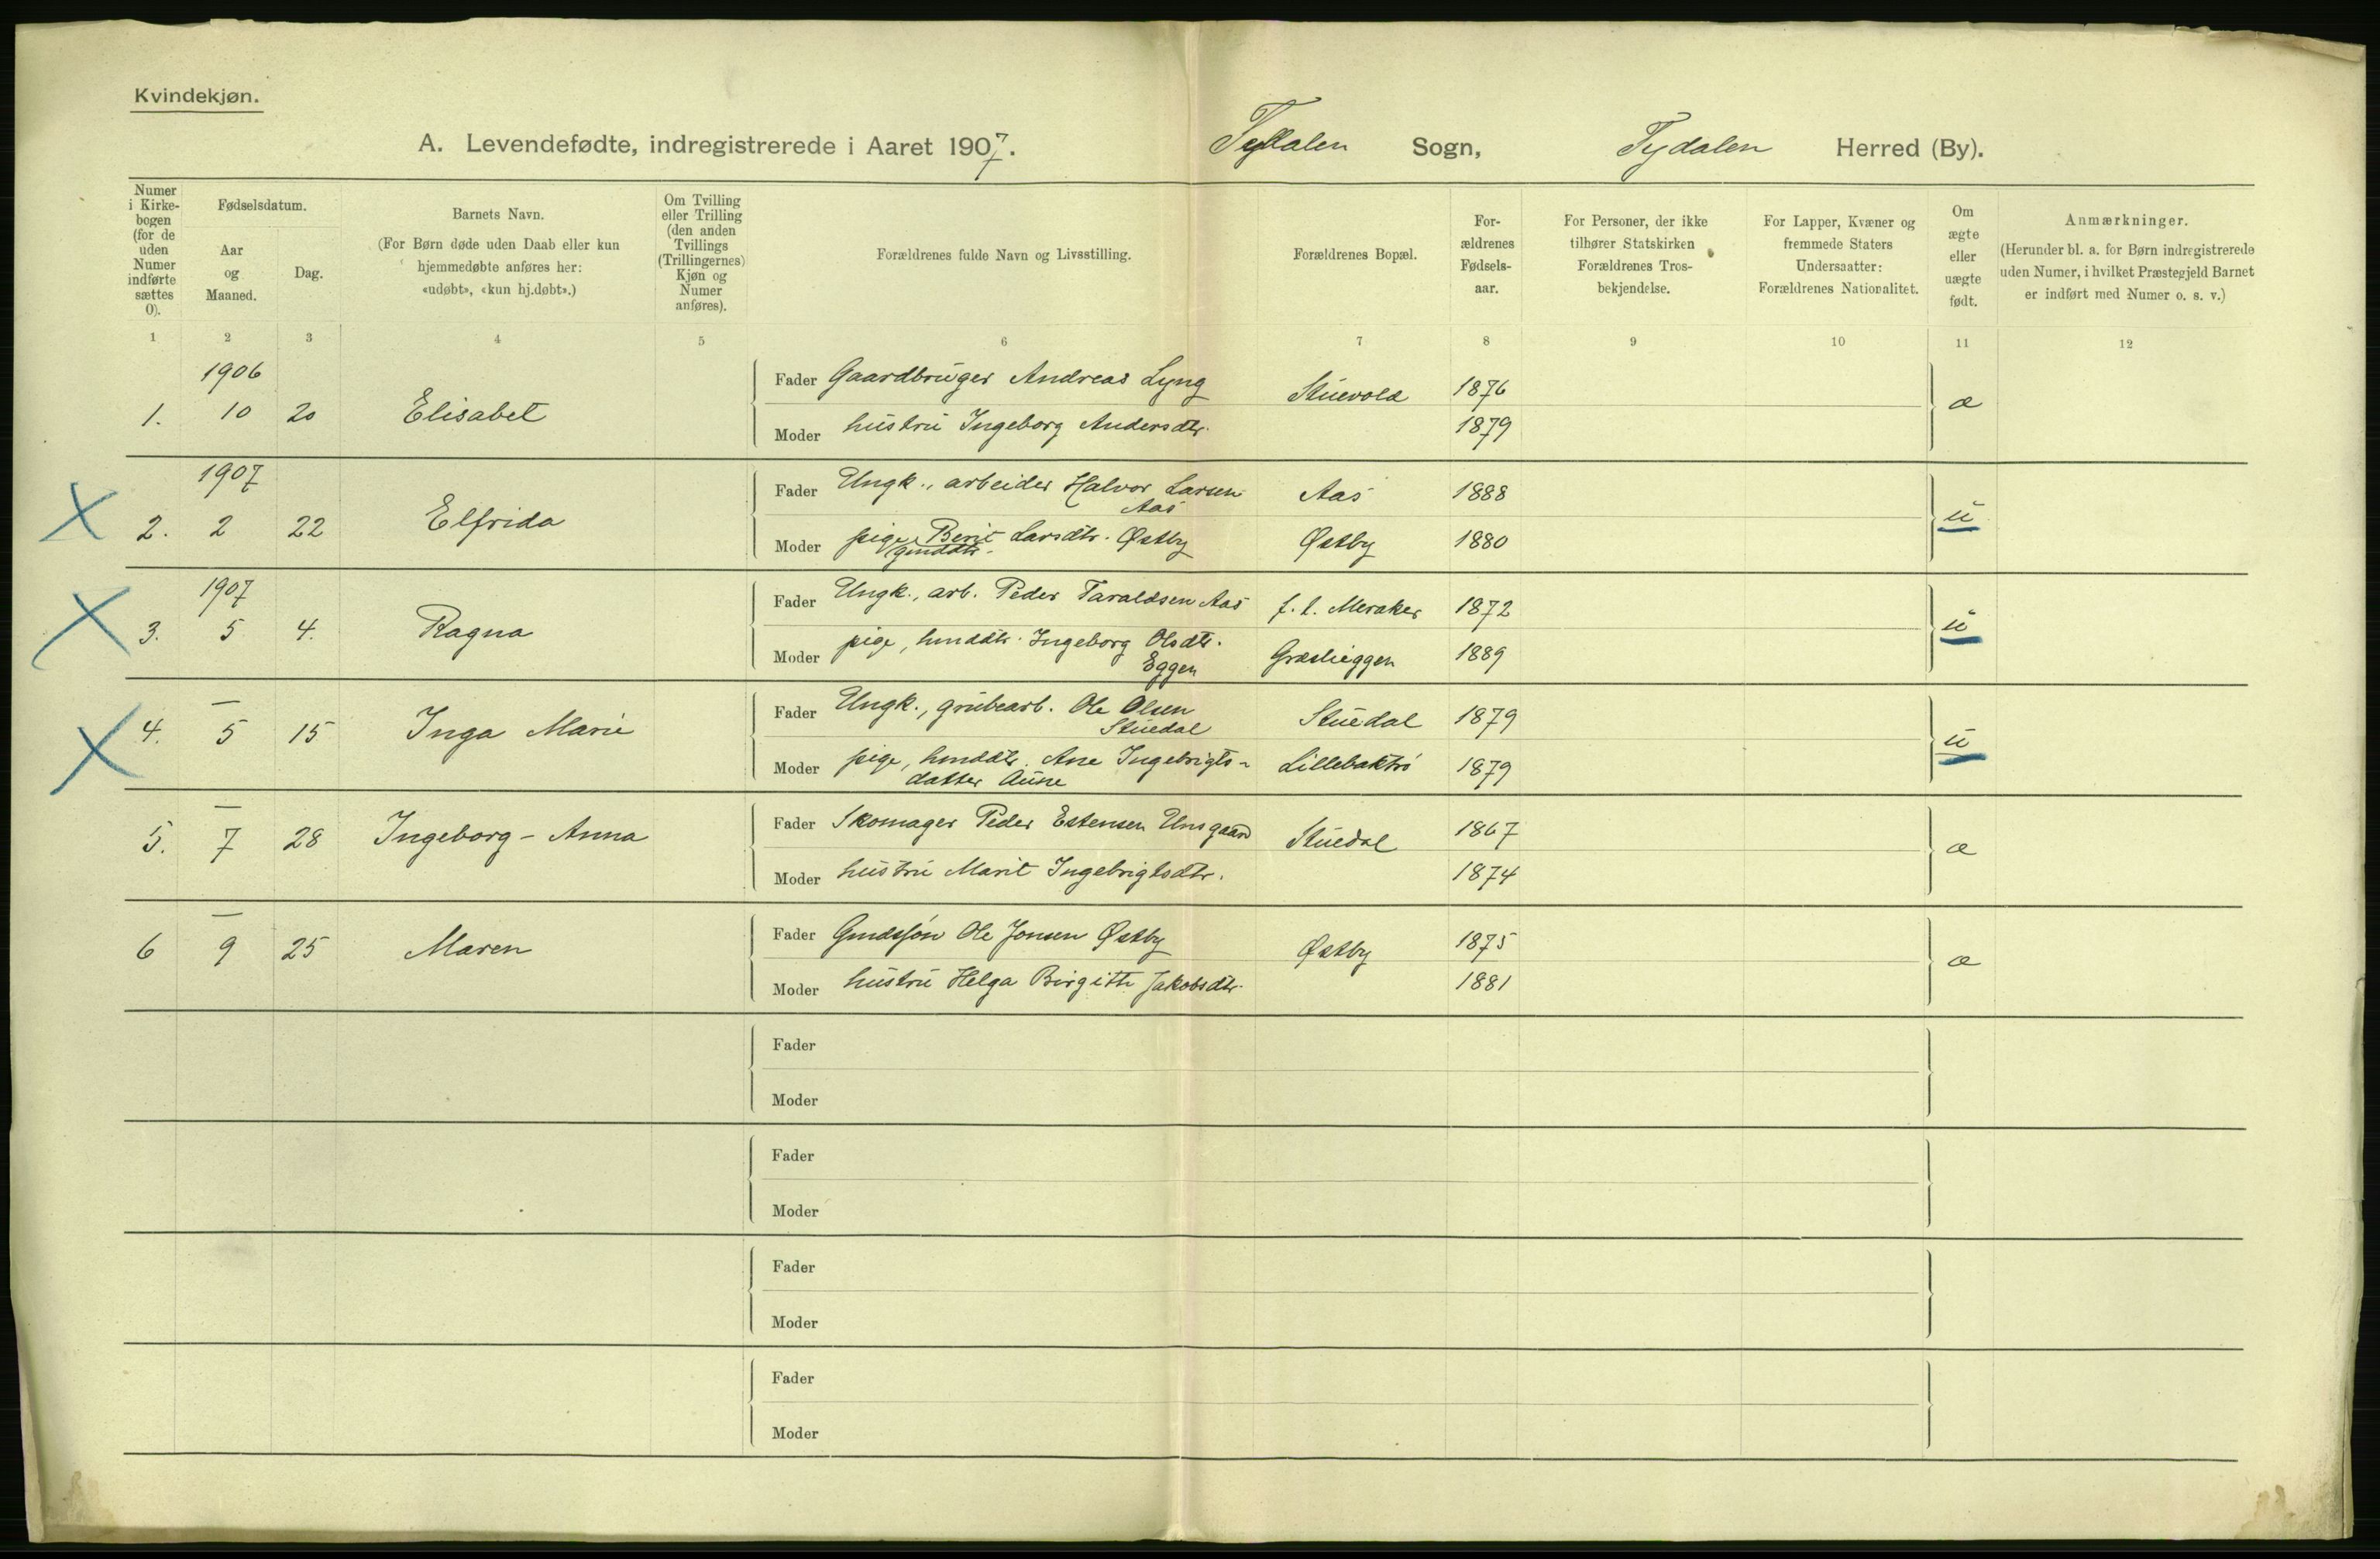 Kvindekjøn.
A. Levendefødte, indregistrerede i Aaret 1907. Tydalen Sogn, Tydalen Herred (By).
Numer i Kirke-bogen (for de uden Numer indførte sættes 0).
Fødselsdatum.
Aar og Maaned.
Dag.
Barnets Navn.
(For Børn døde uden Daab eller kun
hjemmedøbte anføres her:
«udøbt», «kun hj.døbt».)
Om Tvilling
eller Trilling
(den anden
Tvillings
(Trillingernes)
Kjøn og
Numer
anføres).
Forældrenes fulde Navn og Livsstilling.
Forældrenes Bopæl.
For-
ældrenes
Fødsels-
aar.
For Personer, der ikke
tilhører Statskirken
Forældrenes Tros-
bekjendelse.
For Lapper, Kvæner og
fremmede Staters
Undersaatter:
Forældrenes Nationalitet.
Om
ægte
eller
uægte
født.
Anmærkninger.
(Herunder bl. a. for Børn indregistrerede
uden Numer, i hvilket Præstegjeld Barnet
er indført med Numer o. s. v.)
1 2 3 4 5 6 7 8 9 10 11 12
1906
Fader Gaardbruger Andreas Lyng Stuevold 1876
1. 10 20 Elisabet æ
Moder hustru Ingeborg Andersdtr. 1879
1907
Fader Ungk., arbeider Halvor Larsen Aas 1888
Aas
X 2. 2 22 Elfrida u
Moder pige, Berit Larsdtr. Østby Østby 1880
gmddtr.
1907
Fader Ungk., arb. Peder Taraldsen Aas f. t. Meraker 1872
X 3. 5 4. Ragna u
Moder pige, hmddtr. Ingeborg Olsdtr. Græslieggen 1889
Eggen
—
Fader Ungk., grubearb. Ole Olsen Stuedal 1879
Stuedal
X 4. 5 15 Inga Marie u
Moder pige, hmddtr. Ane Ingebrigts- 1879
datter Aune
—
Fader Skomager Peder Estensen Unsgaard Stuedal 1867
5. 7 28 Ingeborg - Anna æ
Moder hustru Marit Ingebrigtsdtr. 1874
—
Fader Gmdssøn Ole Jonsen Østby Østby 1875
6 9 25 Maren æ
Moder hustru Helga Birgitte Jakobsdtr. 1881
Fader
Moder
Fader
Moder
Fader
Moder
Fader
Moder